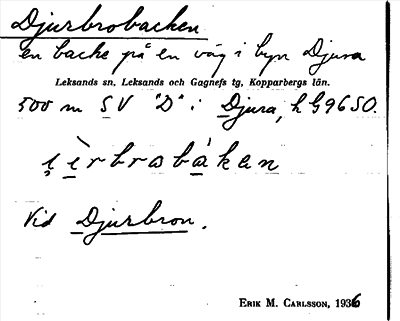 Djurbrobacken
en backe på en väg i byn Djura
Leksands sn, Leksands och Gagnefs tg, Kopparbergs län.
500 m SV "D" i Djura, h G9650.
Vid Djurbron.
ERIK M. CARLSSON, 1936